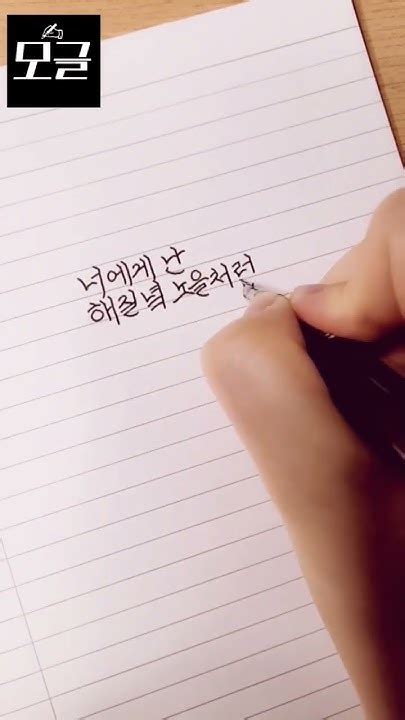 모글
너에게 난
해질녘 노을처러